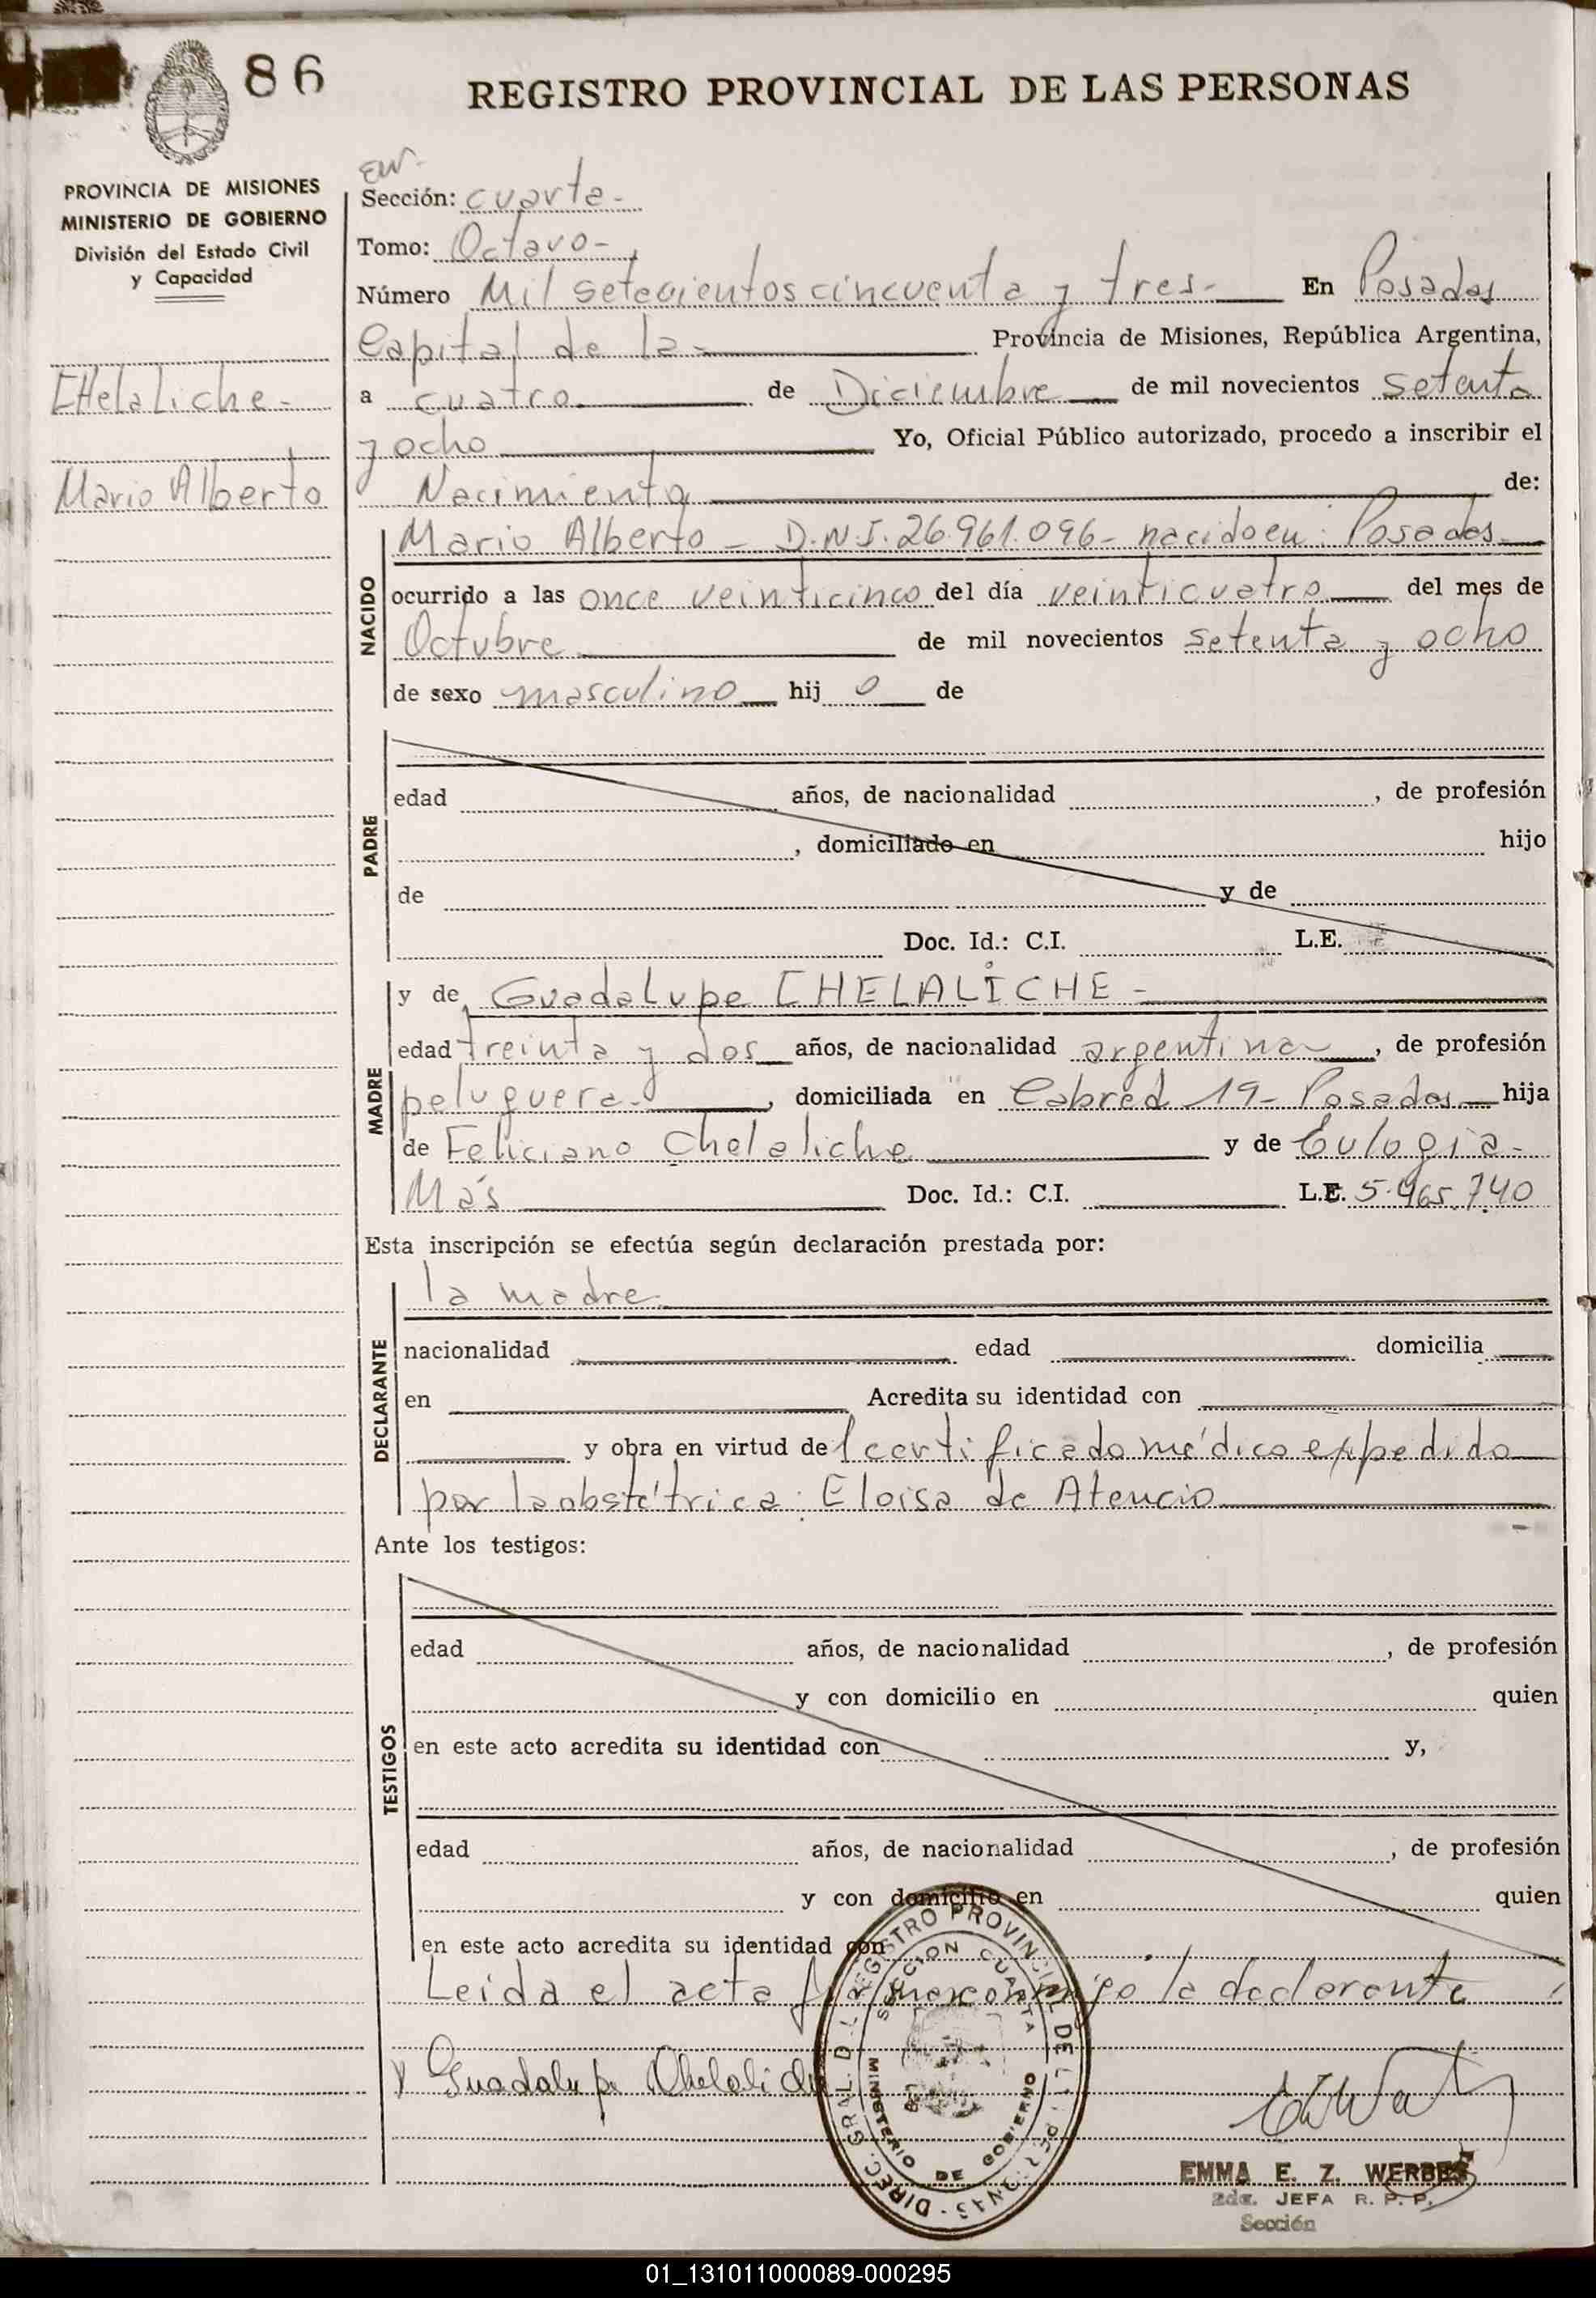 86
REGISTRO PROVINCIAL DE LAS PERSONAS
PROVINCIA DE MISIONES
MINISTERIO DE GOBIERNO
División del Estado Civil
y Capacidad
CHelaLiche -
Mario Alberto
Sección: cuarta -
Tomo: Octavo -
Número Mil setecientos cincuenta y tres - En Posadas
Capital de la - Provincia de Misiones, República Argentina,
a cuatro de Diciembre de mil novecientos setenta
y ocho Yo, Oficial Público autorizado, procedo a inscribir el
Nacimiento de:
NACIDO
Mario Alberto - D.N.I. 26.961.096 - nacido en: Posadas
ocurrido a las once veinticinco del día veinticuatro del mes de
Octubre de mil novecientos setenta y ocho
de sexo masculino hij o de
PADRE
edad años, de nacionalidad , de profesión
, domiciliado en hijo
de y de
Doc. Id.: C.I. L.E.
MADRE
y de Guadalupe CHELALICHE -
edad treinta y dos años, de nacionalidad argentina , de profesión
peluquera - , domiciliada en Cabred 19 - Posadas hija
de Feliciano Chelaliche y de Eulogia -
Más Doc. Id.: C.I. L.E. 5.465.740
Esta inscripción se efectúa según declaración prestada por:
DECLARANTE
la madre
nacionalidad edad domicilia
en Acredita su identidad con
y obra en virtud de l certificado médico expedido
por la obstétrica: Eloisa de Atencio
Ante los testigos:
TESTIGOS
edad años, de nacionalidad , de profesión
y con domicilio en quien
en este acto acredita su identidad con y,
edad años, de nacionalidad , de profesión
y con domicilio en quien
en este acto acredita su identidad con
Leida el acta conmigo la declarante
Guadalupe Chelaliche
DIREC. GRAL. D. L. REGISTRO PROVINCIAL DE L. PERSONAS
SECCION CUARTA
MINISTERIO DE GOBIERNO
EMMA E. Z. WERBES
2da. JEFA R. P. P.
Sección
01_131011000089-000295